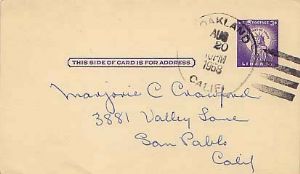 OAKLAND
AUG
20
PM
1958
CALIF.
U.S. POSTAGE 3¢
LIBERTY
THIS SIDE OF CARD IS FOR ADDRESS
Marjorie C Crawford
3881 Valley Lane
San Pablo
Calif